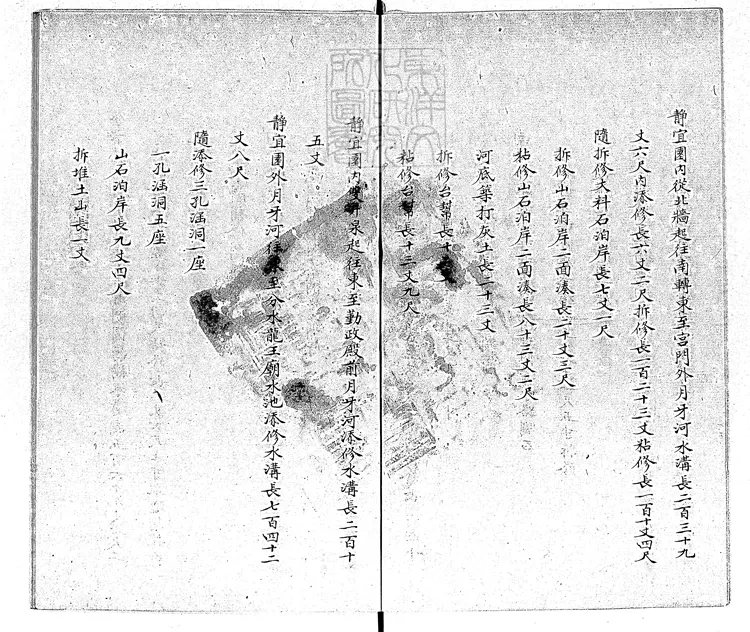 静宜園内從北牆起往南轉東至宮門外月牙河水溝長二百三十九
丈六尺内添修長六丈二尺拆修長一百二十三丈粘修長一百十丈四尺
隨拆修大料石泊岸長七丈一尺
拆修山石泊岸二面湊長二十丈三尺
粘修山石泊岸二面湊長八十三丈二尺
河底築打灰土長二十三丈
拆修台幫長十
粘修台幫長十三丈九尺
静宜園内雙井泉起往東至勤政殿前月牙河添修水溝長二百十
五丈
静宜園外月牙河往東至分水龍王廟水池添修水溝長七百四十二
丈八尺
隨添修三孔涵洞一座
一孔涵洞五座
山石泊岸長九丈四尺
拆堆土山長一丈